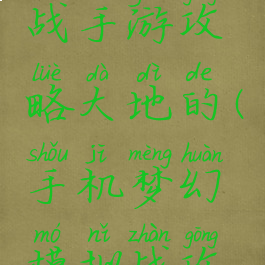 战手游攻
lüè dà dì de
略大地的(
shǒu jī mèng huàn
手机梦幻
mó nǐ zhàn gōng
模拟战攻